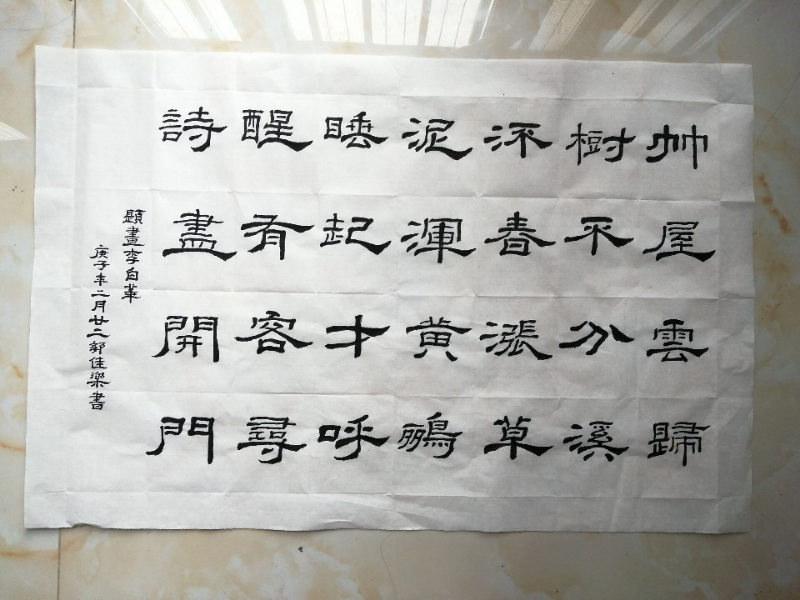 艸屋雲歸
樹不分溪
㳅春漲草
泥渾黄鸝
睡起才呼
醒有客尋
詩盡開門
題畫李白華
庚子年二月廿二郭佳梁書